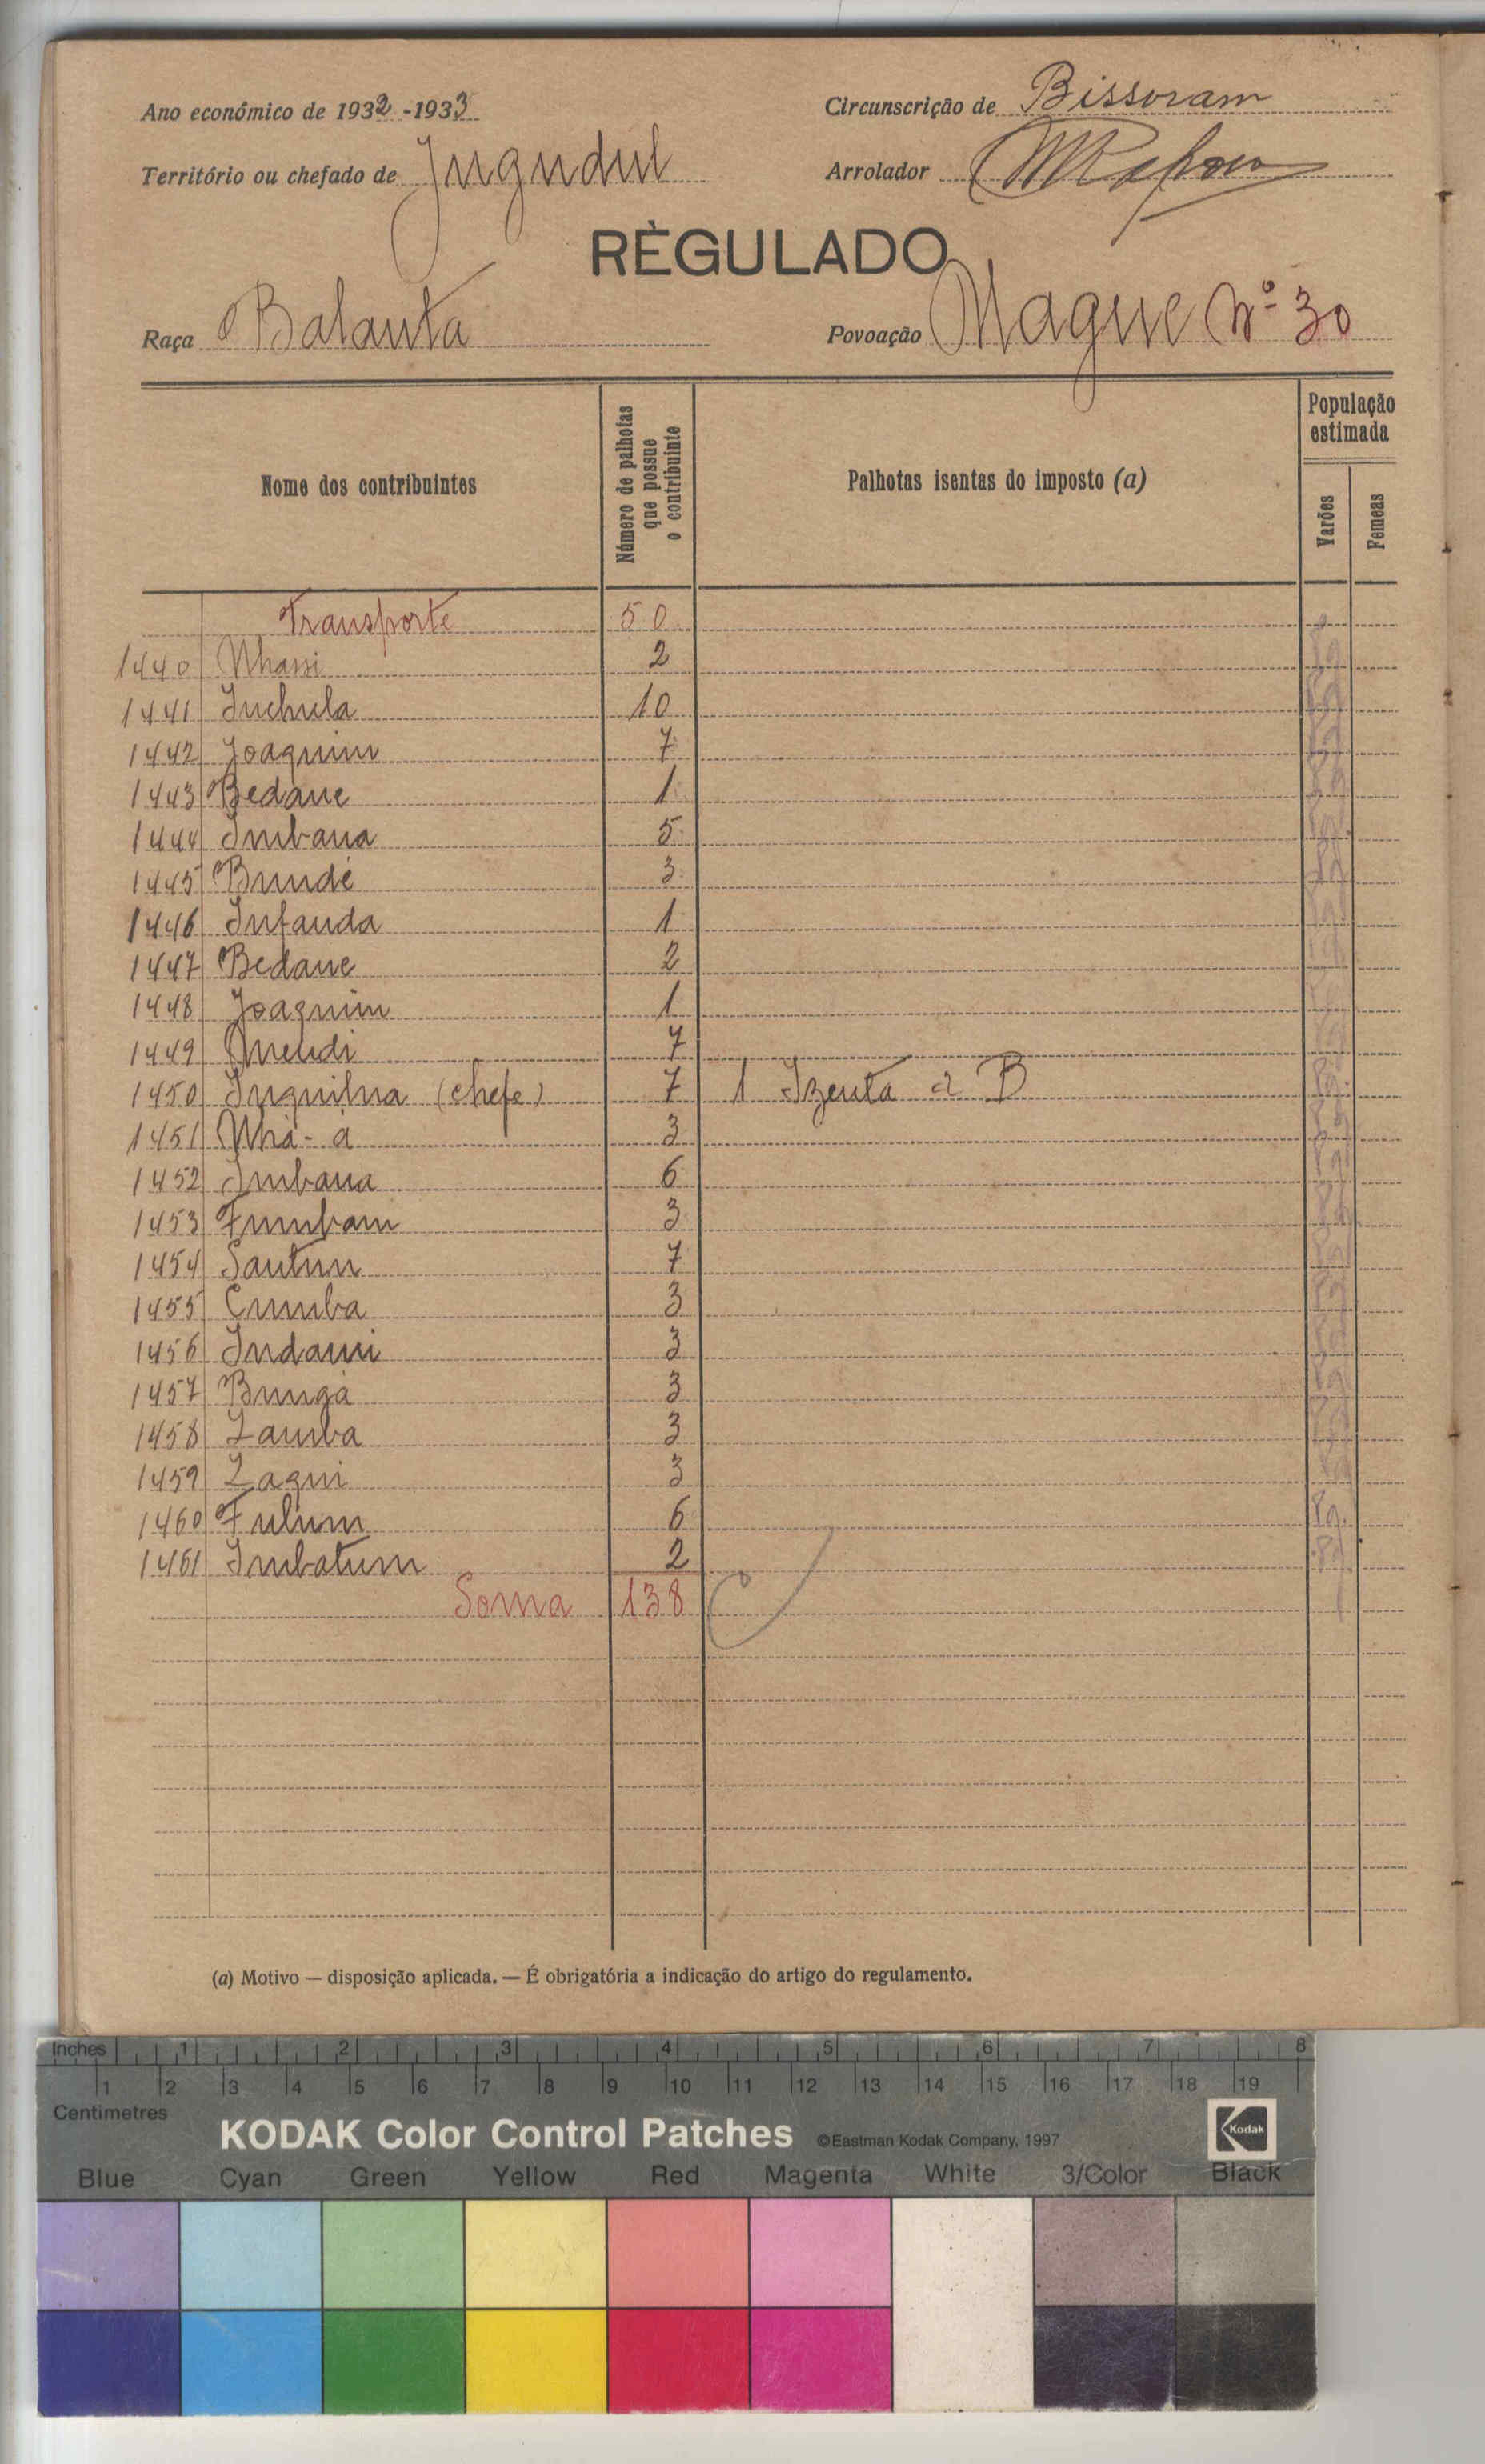 Ano económico de 1932-1933 Circunscrição de Bissoram
Território ou chefado de Jugudul Arrolador
RÈGULADO
Raça Balanta Povoação Nague Nº 30
Nome dos contribuintes Número de palhotas que possue o contribuinte Palhotas isentas do imposto (a) População estimada Varões Femeas
Transporte 50
1440 Nhassi 2 Pg
1441 Inchula 10 Pg
1442 Joaquim 7 Pg
1443 Bedane 1 Pg
1444 Imbana 5 Pg
1445 Bundé 3 Pg
1446 Infanda 1 Pg
1447 Bedane 2 Pg
1448 Joaquim 1 Pg
1449 Quendi 7 Pg
1450 Inquilna (chefe) 7 1 Izenta a B Pg
1451 Nhá-á 3 Pg
1452 Imbana 6 Pg
1453 Fumbam 3 Pg
1454 Santun 7 Pg
1455 Cumba 3 Pg
1456 Indami 3 Pg
1457 Bungá 3 Pg
1458 Lamba 3 Pg
1459 Laqui 3 Pg
1460 Fulum 6 Pg
1461 Imbatum 2 Pg
Soma 138
(a) Motivo — disposição aplicada. — É obrigatória a indicação do artigo do regulamento.
Inches 1 2 3 4 5 6 7 8
1 2 3 4 5 6 7 8 9 10 11 12 13 14 15 16 17 18 19
Centimetres
KODAK Color Control Patches ©Eastman Kodak Company, 1997 Kodak
Blue Cyan Green Yellow Red Magenta White 3/Color Black